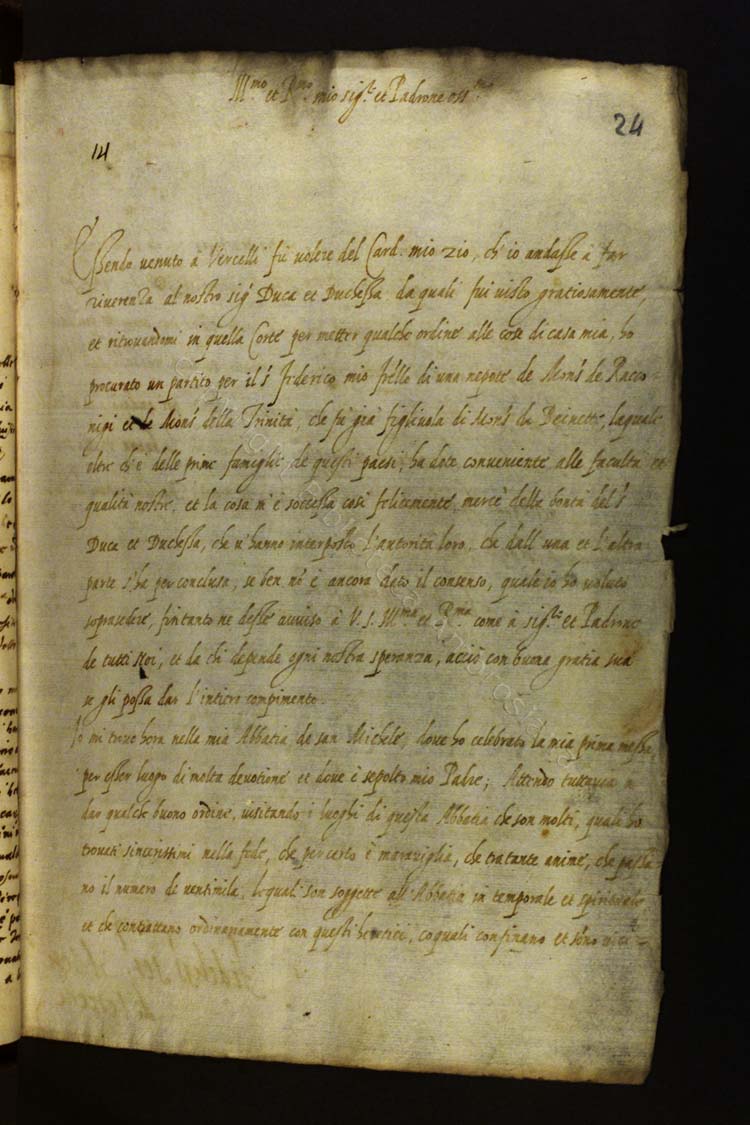 Ill.mo et R.mo mio sig.re et Padrone oss.mo
24
141
Essendo venuto à Vercelli fu volere del Card. mio zio, ch'io andasse à far
riverenza al nostro sig.r Duca et Duchessa da quali fui visto gratiosamente,
et ritrovandomi in quella Corte per metter qualche ordine alle cose di casa mia, ho
procurato un partito per il s.r Federico mio frello di una nepote de Mons.r de Racco-
nigi et de Mons.r della Trinità, che fu già figliuola di Mons.r da Beinette, laquale
oltre ch'è delle prime famiglie de questi paesi, ha dote conveniente alle facultà et
qualità nostre, et la cosa n'è soccessa così felicemente, mercè della bontà del s.r
Duca et Duchessa, che v'hanno interposto l'autorità loro, che dall'una et l'altra
parte s'ha per conclusa, se ben nõ è ancora dato il consenso, quale io ho voluto
soprasedere, fin tanto ne desse avviso à V. S. Ill.ma et R.ma come à sig.re et Padrone
de tutti Noi, et da chi depende ogni nostra speranza, acciò con buona gratia sua
se gli possa dar l'intiero compimento.
Io mi trovo hora nella mia Abbatia de san Michele, dove ho celebrato la mia prima messa
per esser luogo di molta devotione et dove è sepolto mio Padre; Attendo tuttavia à
dar qualche buono ordine, visitando i luoghi di questa Abbatia che son molti, quali ho
trovati sincerissimi nella fede, che per certo è maraviglia, che tra tante anime, che passa-
no il numero de ventimila, lequali son soggette all'Abbatia in temporale et spirituale
et che contrattano ordinariamente con questi heretici, co quali confinano et sono vici-